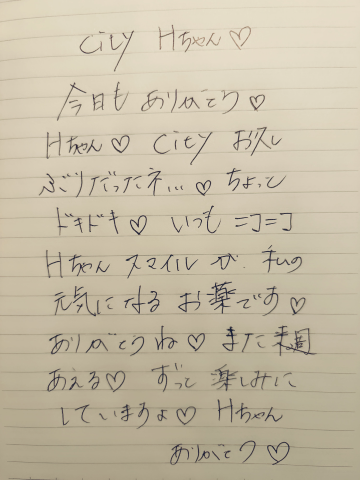 City Hちゃん♡
今日も ありがとう♡
Hちゃん♡ City お久し
ぶりだったネ...♡ ちょっと
ドキドキ♡ いつも ニコニコ
Hちゃん スマイル が 私の
元気になる お薬です♡
ありがとうね♡ また来週
あえる♡ ずっと 楽しみに
していますよ♡ Hちゃん
ありがとう♡